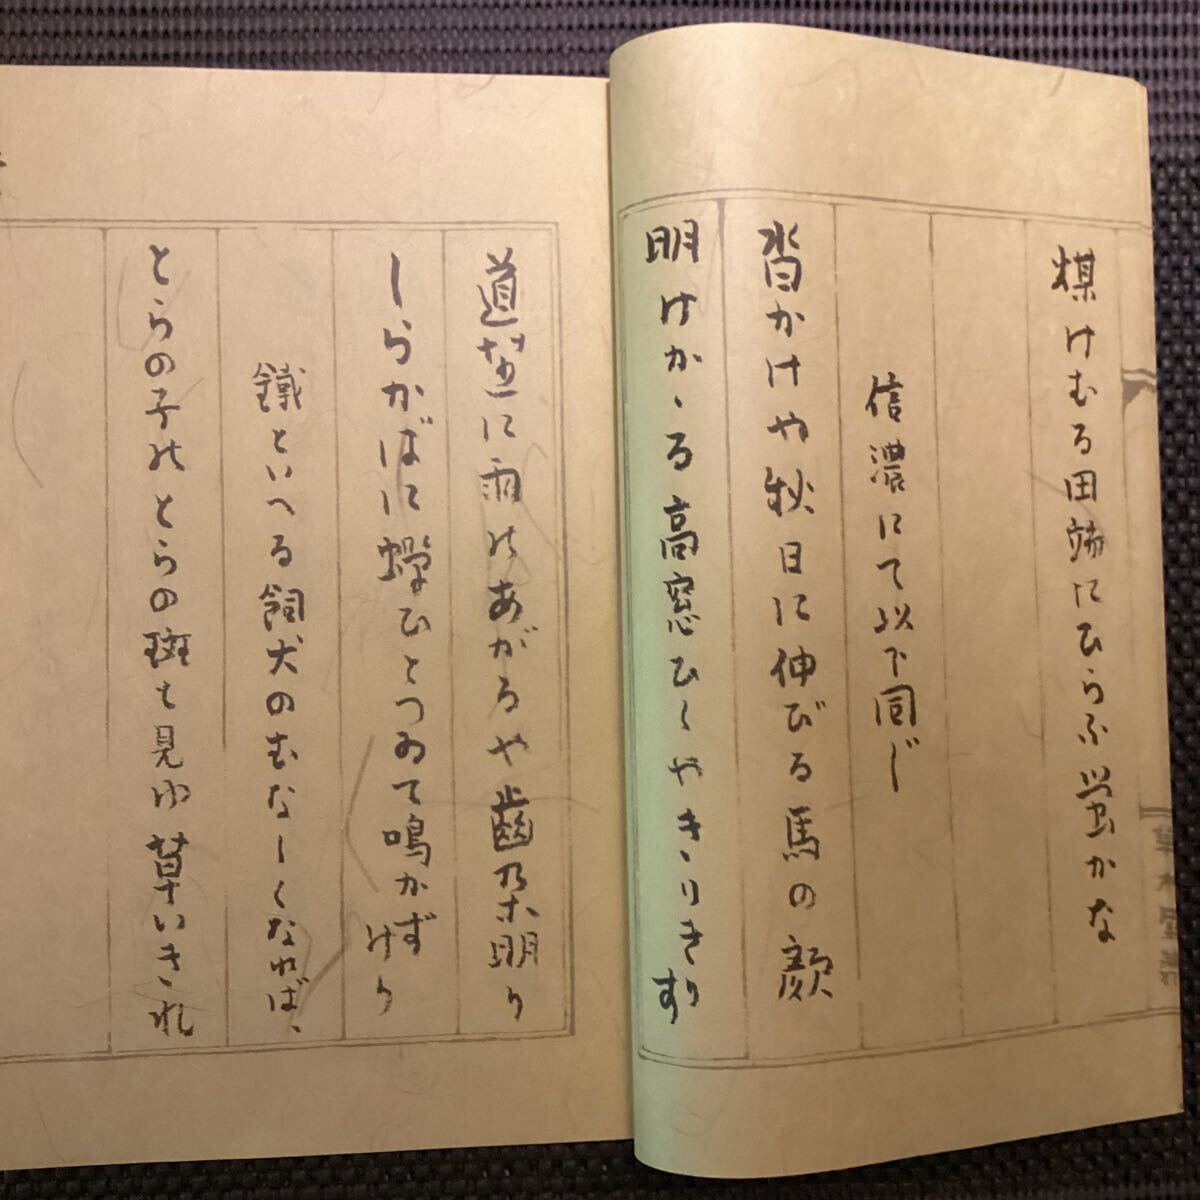 煤けむる田端にひらふ蛍かな
信濃にて以下同じ
沓かけや秋日に伸びる馬の顔
明けかゝる高窓ひくやきりきりす
道芝に雨のあがるや齒朶明り
しらかばに蟬ひとつゐて鳴かずけり
鐵といへる飼犬のむなしくなれば、
とらの子のとらの斑も見ゆ草いきれ